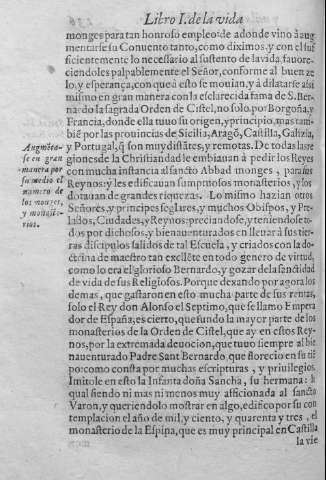 Libro I. de la vida
monges para tan honroso empleo: de adonde vino à aug
mentarse su Conuento tanto, como diximos, y con el suf
ficientemente lo necessario al sustento de la vida, fauore-
ciendoles palpablemente el Señor, conforme al buen ze
lo, y esperança, con que a esto se mouian, y à dilatarse assi
mismo en gran manera con la esclarecida fama de S. Ber-
nardo la sagrada Orden de Cistel, no solo, por Borgoña, y
Francia, donde ella tuuo su origen, y principio, mas tam-
biẽ por las prouincias de Sicilia, Aragõ, Castilla, Galizia,
y Portugal, q̃ son muy distãtes, y remotas. De todas las re
giones de la Christiandad le embiauan à pedir los Reyes
con mucha instancia al sancto Abbad monges, para sus
Reynos: y les edificauan sumptuosos monasterios, y los
dotauan de grandes riquezas. Lo mismo hazian otros
Señores, y principes seglares, y muchos Obispos, y Pre-
lados, Ciudades, y Reynos: preciandose, y teniendose to-
dos por dichosos, y bienauenturados en lleuar à sus tier-
ras discipulos salidos de tal Escuela, y criados con la do-
ctrina de maestro tan excellẽte en todo genero de virtud,
como lo era el glorioso Bernardo, y gozar de la sanctidad
de vida de sus Religiosos. Porque dexando por agora los
demas, que gastaron en esto mucha parte de sus rentas,
solo el Rey don Alonso el Septimo, que se llamo Empera
dor de España; es cierto, que fundo la mayor parte de los
monasterios de la Orden de Cistel, que ay en estos Rey-
nos, por la extremada deuocion, que tuuo siempre al bie
nauenturado Padre Sant Bernardo, que florecio en su tiẽ
po: como consta por muchas escripturas, y priuilegios.
Imitole en esto la Infanta doña Sancha, su hermana: la
qual siendo ni mas ni menos muy afficionada al sancto
Varon, y queriendolo mostrar en algo, edifico por su con
templacion el año de mil, y ciento, y quarenta y tres, el
monasterio de la Espina, que es muy principal en Castilla
la vie
Augmẽto-
se en gran
manera por
su medio el
numero de
los monges,
y monaste-
rios.